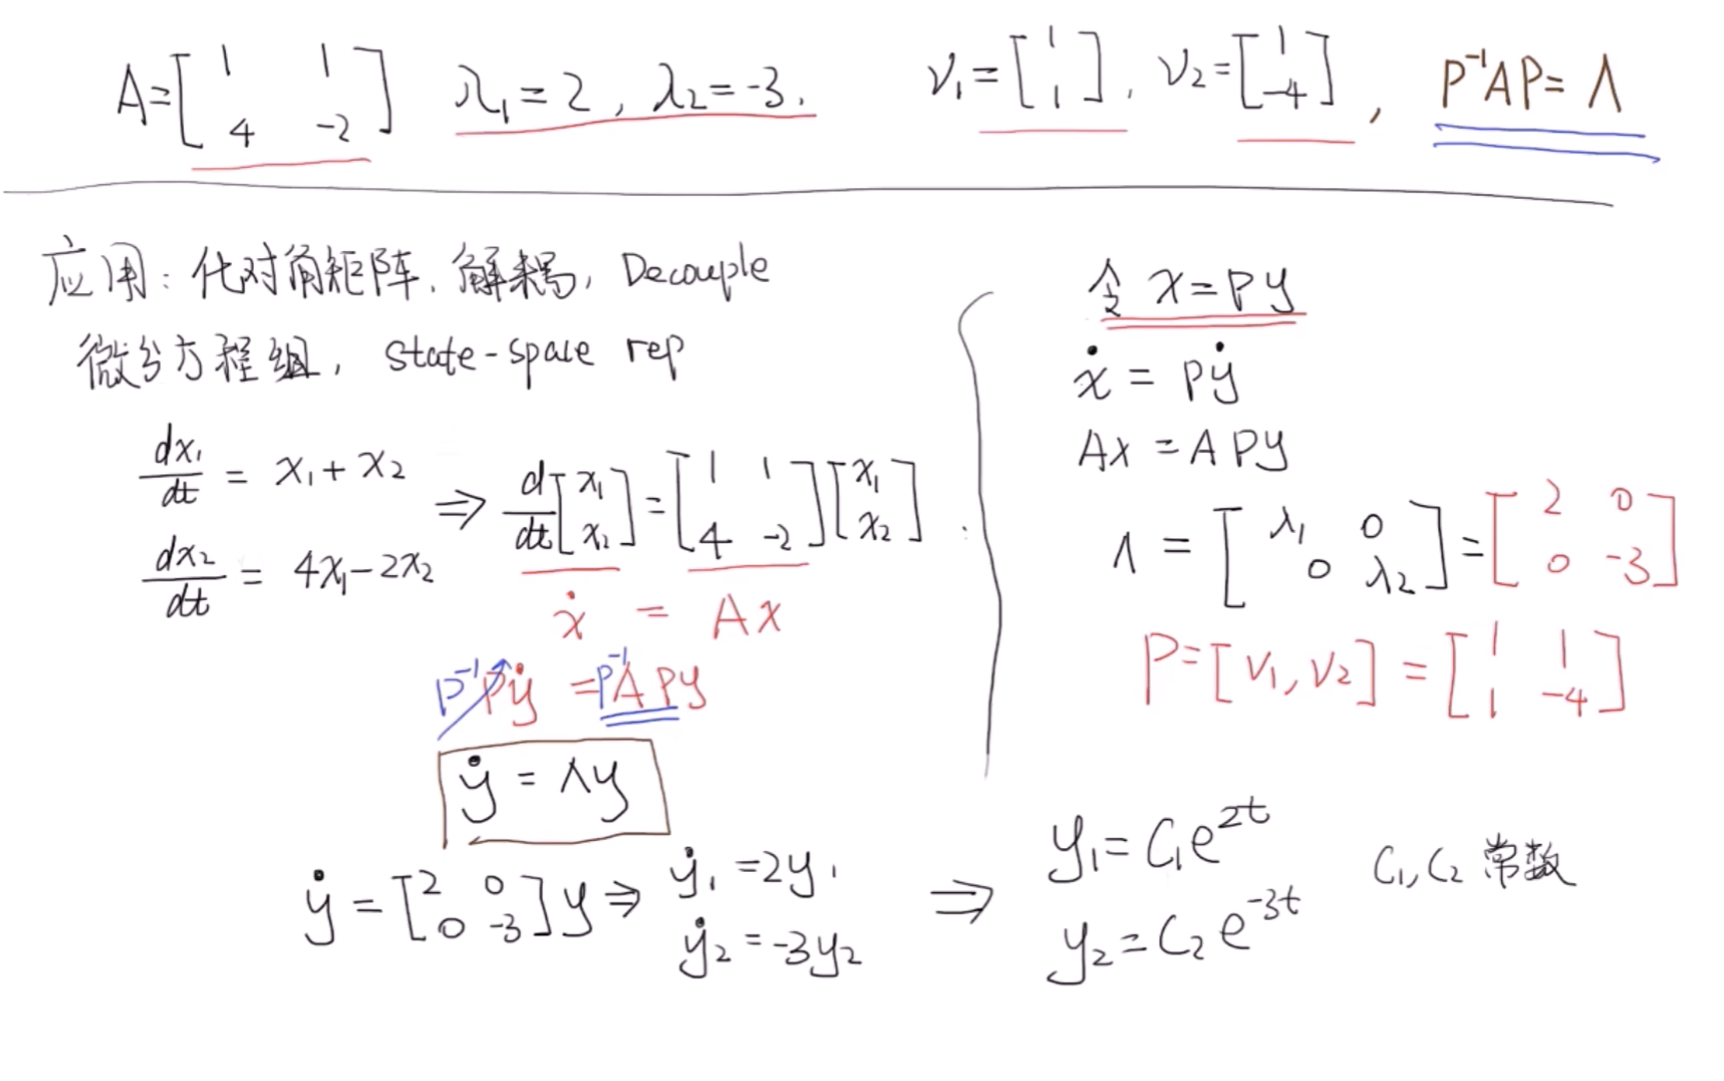 A = [1 1; 4 -2] λ₁ = 2, λ₂ = -3. v₁ = [1; 1], v₂ = [1; -4], P⁻¹AP = Λ
应用: 化对角矩阵. 解耦, Decouple
微分方程组, state-space rep
dx₁/dt = x₁ + x₂
dx₂/dt = 4x₁ - 2x₂
⇒ d/dt [x₁; x₂] = [1 1; 4 -2] [x₁; x₂]
ẋ = Ax
P⁻¹Pẏ = P⁻¹APy
ẏ = Λy
令 x = Py
ẋ = Pẏ
Ax = APy
Λ = [λ₁ 0; 0 λ₂] = [2 0; 0 -3]
P = [v₁, v₂] = [1 1; 1 -4]
ẏ = [2 0; 0 -3] y ⇒ ẏ₁ = 2y₁
ẏ₂ = -3y₂
⇒ y₁ = C₁e^{2t}
y₂ = C₂e^{-3t}
C₁, C₂ 常数